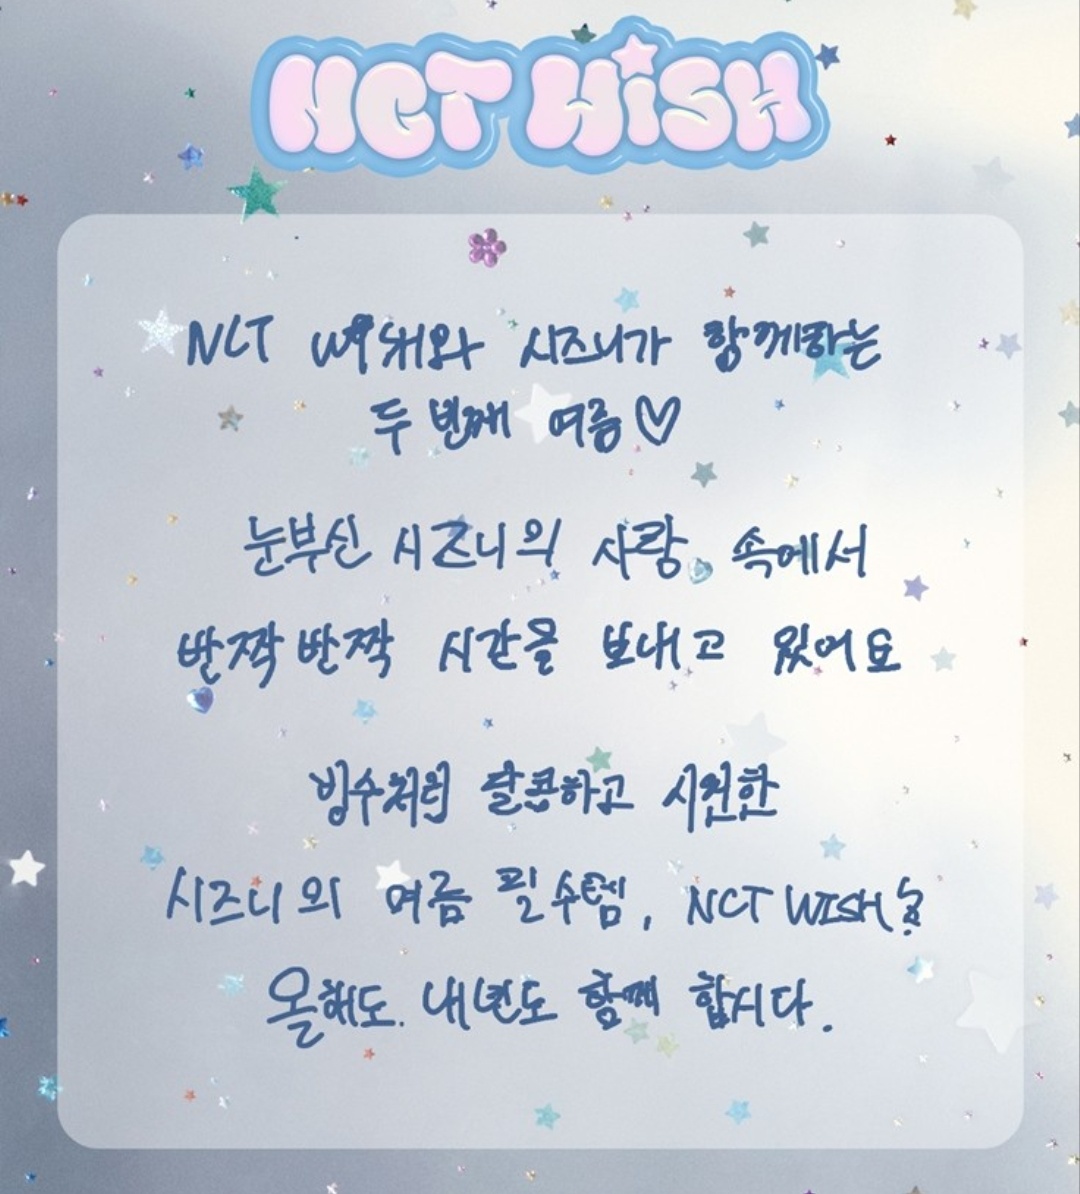 NCT WISH
NCT WISH와 시즈니가 함께하는
두 번째 여름♡
눈부신 시즈니의 사랑 속에서
반짝반짝 시간을 보내고 있어요
빙수처럼 달콤하고 시원한
시즈니의 여름 필수템, NCT WISH를
올해도 내년도 함께 합시다.